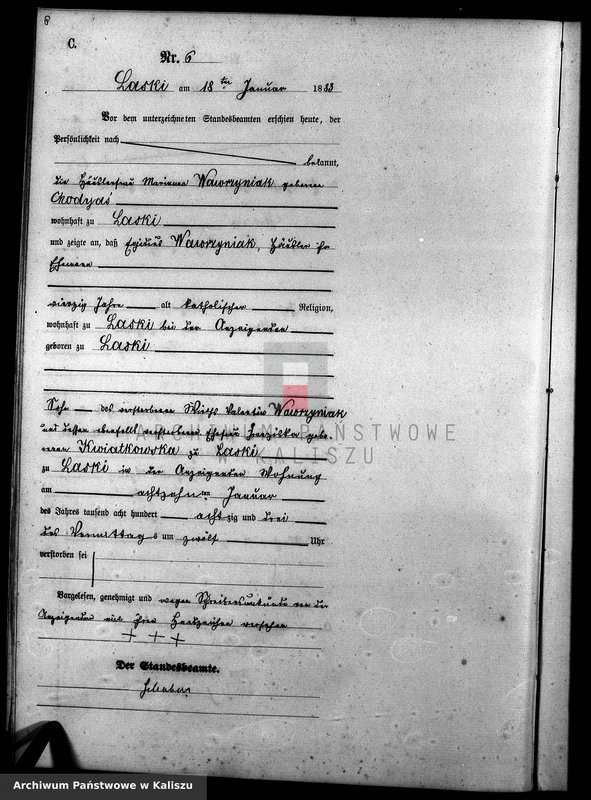 8
C.
Nr. 6
Laski am 18ten Januar 1883
Vor dem unterzeichneten Standesbeamten erschien heute, der
Persönlichkeit nach
bekannt,
die Häuslerfrau Marianna Wawrzyniak geborene
Chodyas
wohnhaft zu Laski
und zeigte an, daß Wawrzyniak, Häusler ihr
Ehemann
vierzig Jahre alt katholischer Religion,
wohnhaft zu Laski bei der Anzeigenden
geboren zu Laski
Sohn des verstorbenen Wirths Valentin Wawrzyniak
und dessen ebenfalls verstorbenen Ehefrau gebo-
renen Kwiatkowska zu Laski
zu Laski in der Anzeigenden Wohnung
am achtzehnten Januar
des Jahres tausend acht hundert achtzig und drei
des Vormittags um zwölf Uhr
verstorben sei
Vorgelesen, genehmigt und wegen Schreibensunkunde von der
Anzeigenden mit ihren Handzeichen versehen
+ + +
Der Standesbeamte.
ARCHIWUM PAŃSTWOWE
W KALISZU
Archiwum Państwowe w Kaliszu